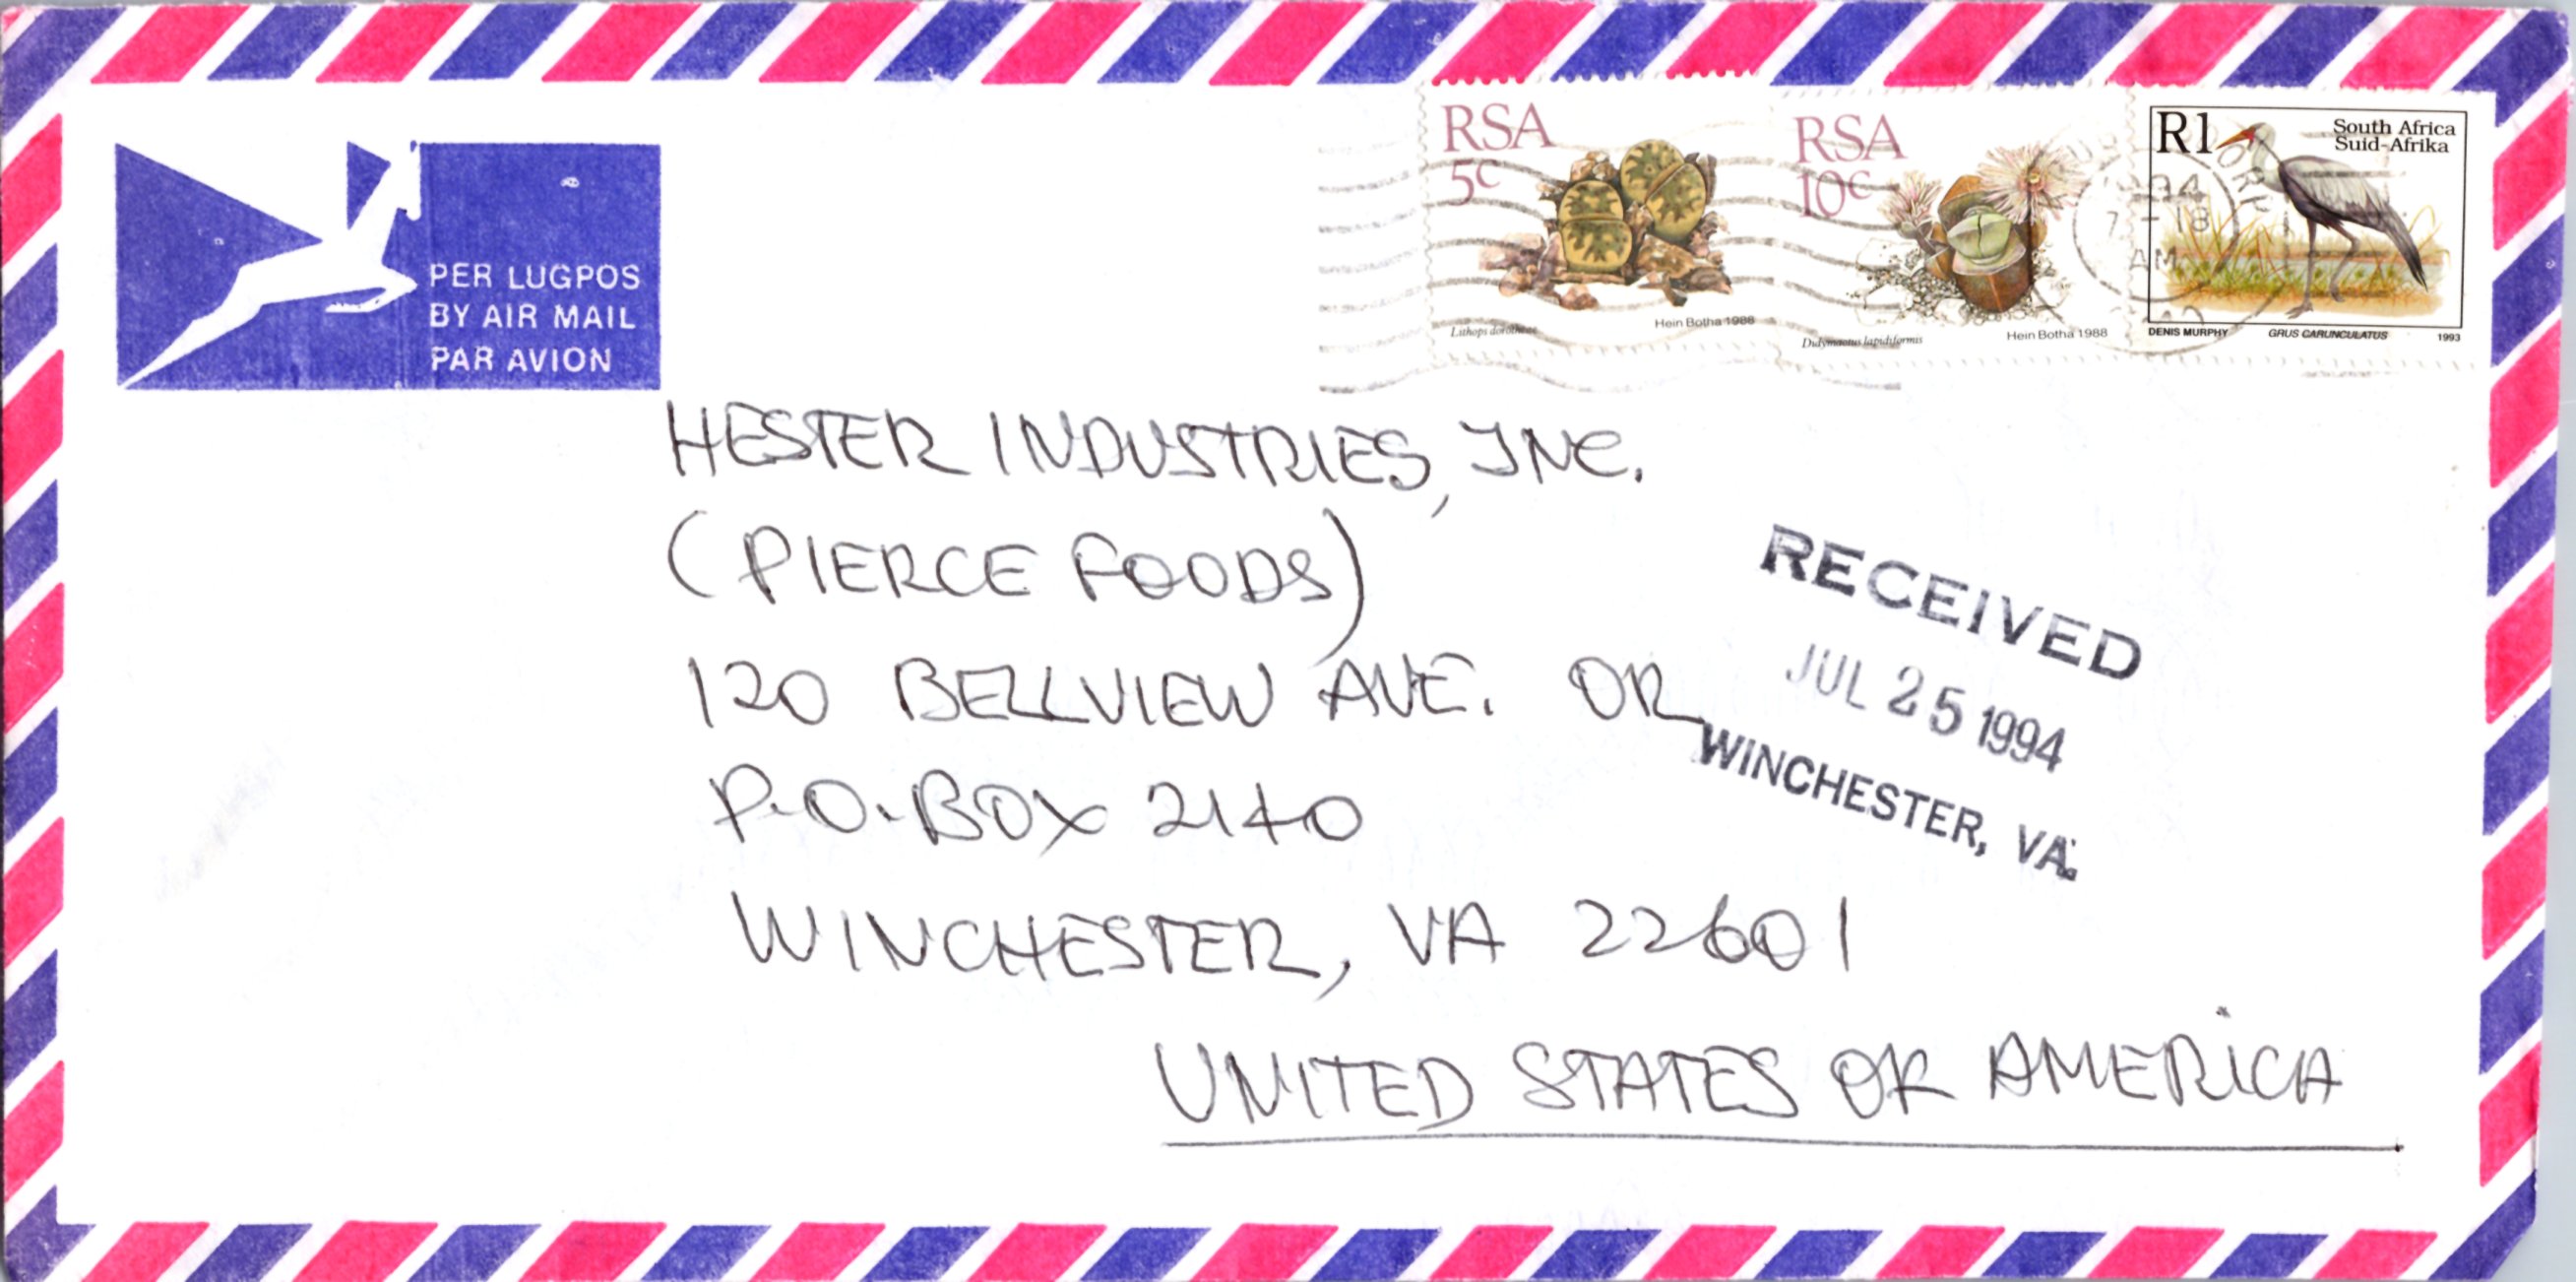 RSA
5c
Lithops dorotheae
Hein Botha 1988
RSA
10c
Didymaotus lapidiformis
Hein Botha 1988
R1
South Africa
Suid-Afrika
DENIS MURPHY
GRUS CARUNCULATUS
1993
94
7 - 18
AM
PER LUGPOS
BY AIR MAIL
PAR AVION
HESTER INDUSTRIES, INC.
(PIERCE FOODS)
120 BELLVIEW AVE. OR
P.O. BOX 2140
WINCHESTER, VA 22601
UNITED STATES OF AMERICA
RECEIVED
JUL 25 1994
WINCHESTER, VA.